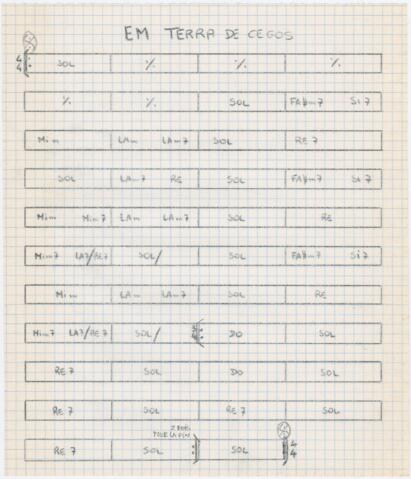 EM TERRA DE CEGOS
4 4 SOL % % %
% % SOL FA#m7 Si7
Mim LAm LAm7 SOL RE7
SOL LAm7 RE SOL FA#m7 Si7
Mim Mim7 LAm LAm7 SOL RE
Mim7 LA7/RE7 SOL/ SOL FA#m7 Si7
Mim LAm LAm7 SOL RE
Mim7 LA7/RE7 SOL/ DO SOL
RE7 SOL DO SOL
RE7 SOL RE7 SOL
2 FOIS
POUR LA FIN
RE7 SOL SOL 4 4